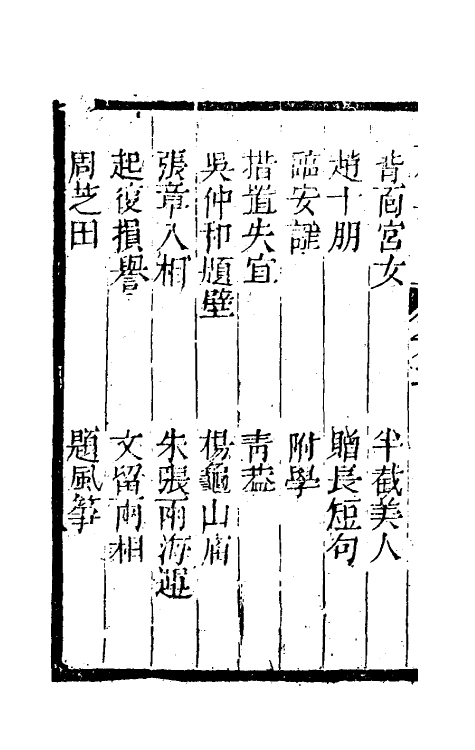 背面宮女　半截美人
趙十朋　贈長短句
臨安謔　附學
措置失宜　青蓋
吳仲和題壁　楊龜山廟
張章入相　朱張兩海運
起復損譽　文留兩相
周芝田　題風箏